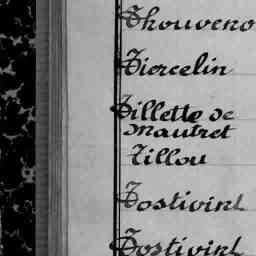 Thouveno
Tiercelin
Tillette de
Mautret
Tillou
Tostivint
Tostivint